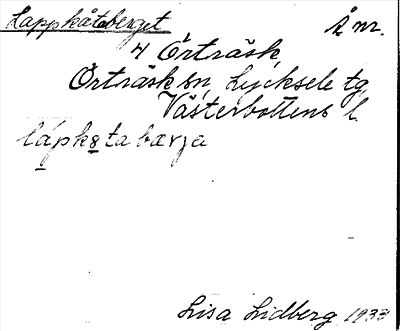 Lappkåtaberget Å nr.
4 Örträsk,
Örträsk sn, Lycksele tg,
Västerbottens l.
lápkåta bærja
Lisa Lidberg 1933